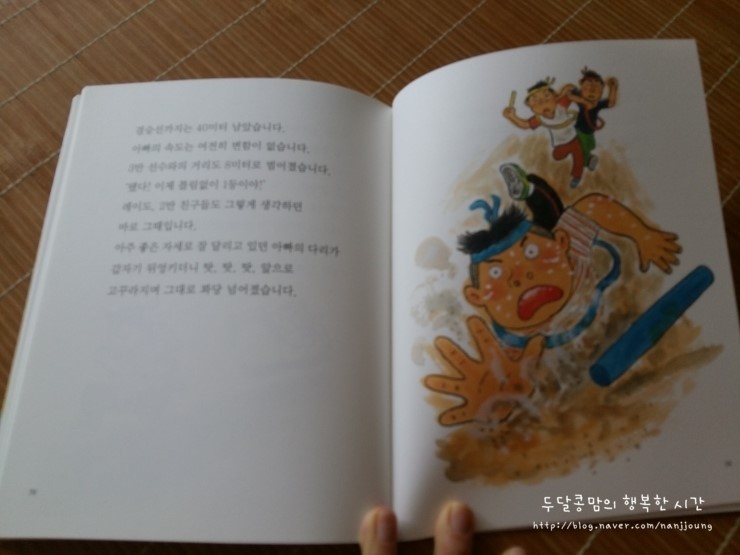 결승선까지는 40미터 남았습니다.
아빠의 속도는 여전히 변함이 없습니다.
3반 선수와의 거리도 8미터로 벌어졌습니다.
'됐다! 이제 틀림없이 1등이야!'
레이도, 2반 친구들도 그렇게 생각하던
바로 그때입니다.
아주 좋은 자세로 잘 달리고 있던 아빠의 다리가
갑자기 뒤엉키더니 탓, 탓, 탓, 앞으로
고꾸라지며 그대로 꽈당 넘어졌습니다.
두달콩맘의 행복한 시간
http://blog.naver.com/nanjjoung